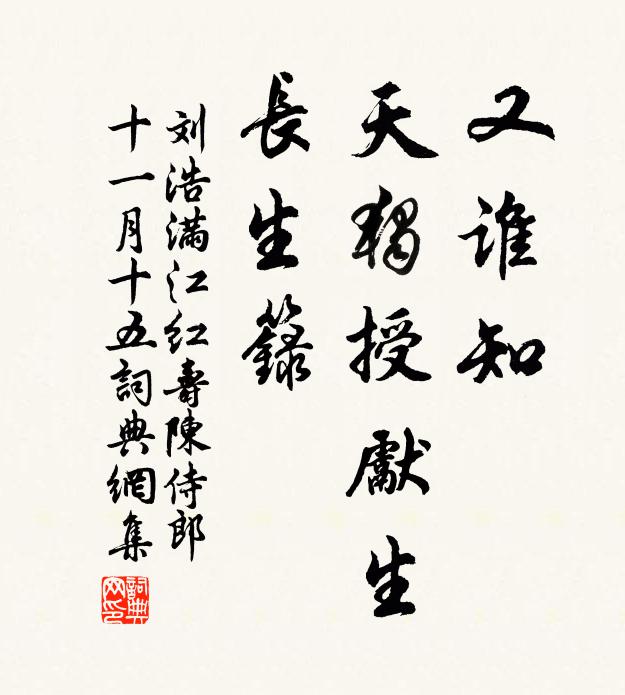 又誰知
天獨授獻生
長生籙
刘浩满江红壽陳侍郎
十一月十五詞典網集
詞典网印